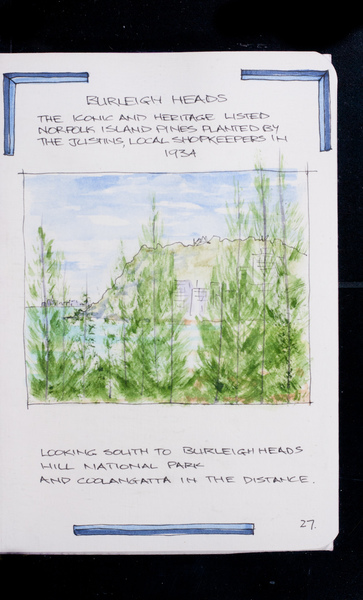 BURLEIGH HEADS
THE ICONIC AND HERITAGE LISTED
NORFOLK ISLAND PINES PLANTED BY
THE JUSTINS, LOCAL SHOPKEEPERS IN
1934
LOOKING SOUTH TO BURLEIGH HEADS
HILL NATIONAL PARK
AND COOLANGATTA IN THE DISTANCE.
27.